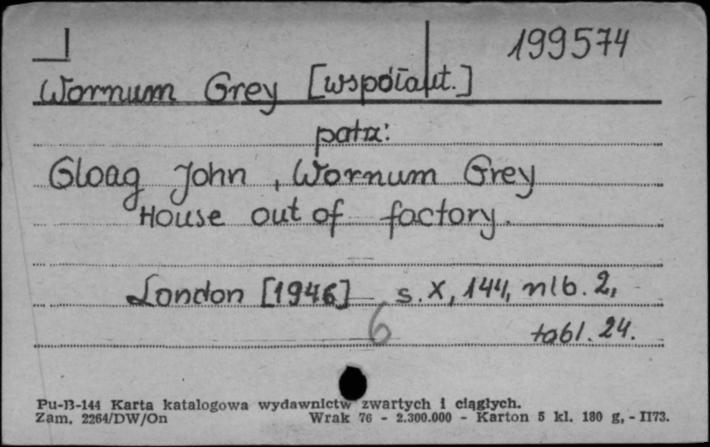 199574
Wornum Grey [współaut.]
patrz:
Gloag John, Wornum Grey
House out of factory.
London [1946] s. X, 144, nlb. 2,
6
tabl. 24.
Pu-B-144 Karta katalogowa wydawnictw zwartych i ciągłych.
Zam. 2264/DW/On Wrak 76 - 2.300.000 - Karton 5 kl. 180 g, - II73.